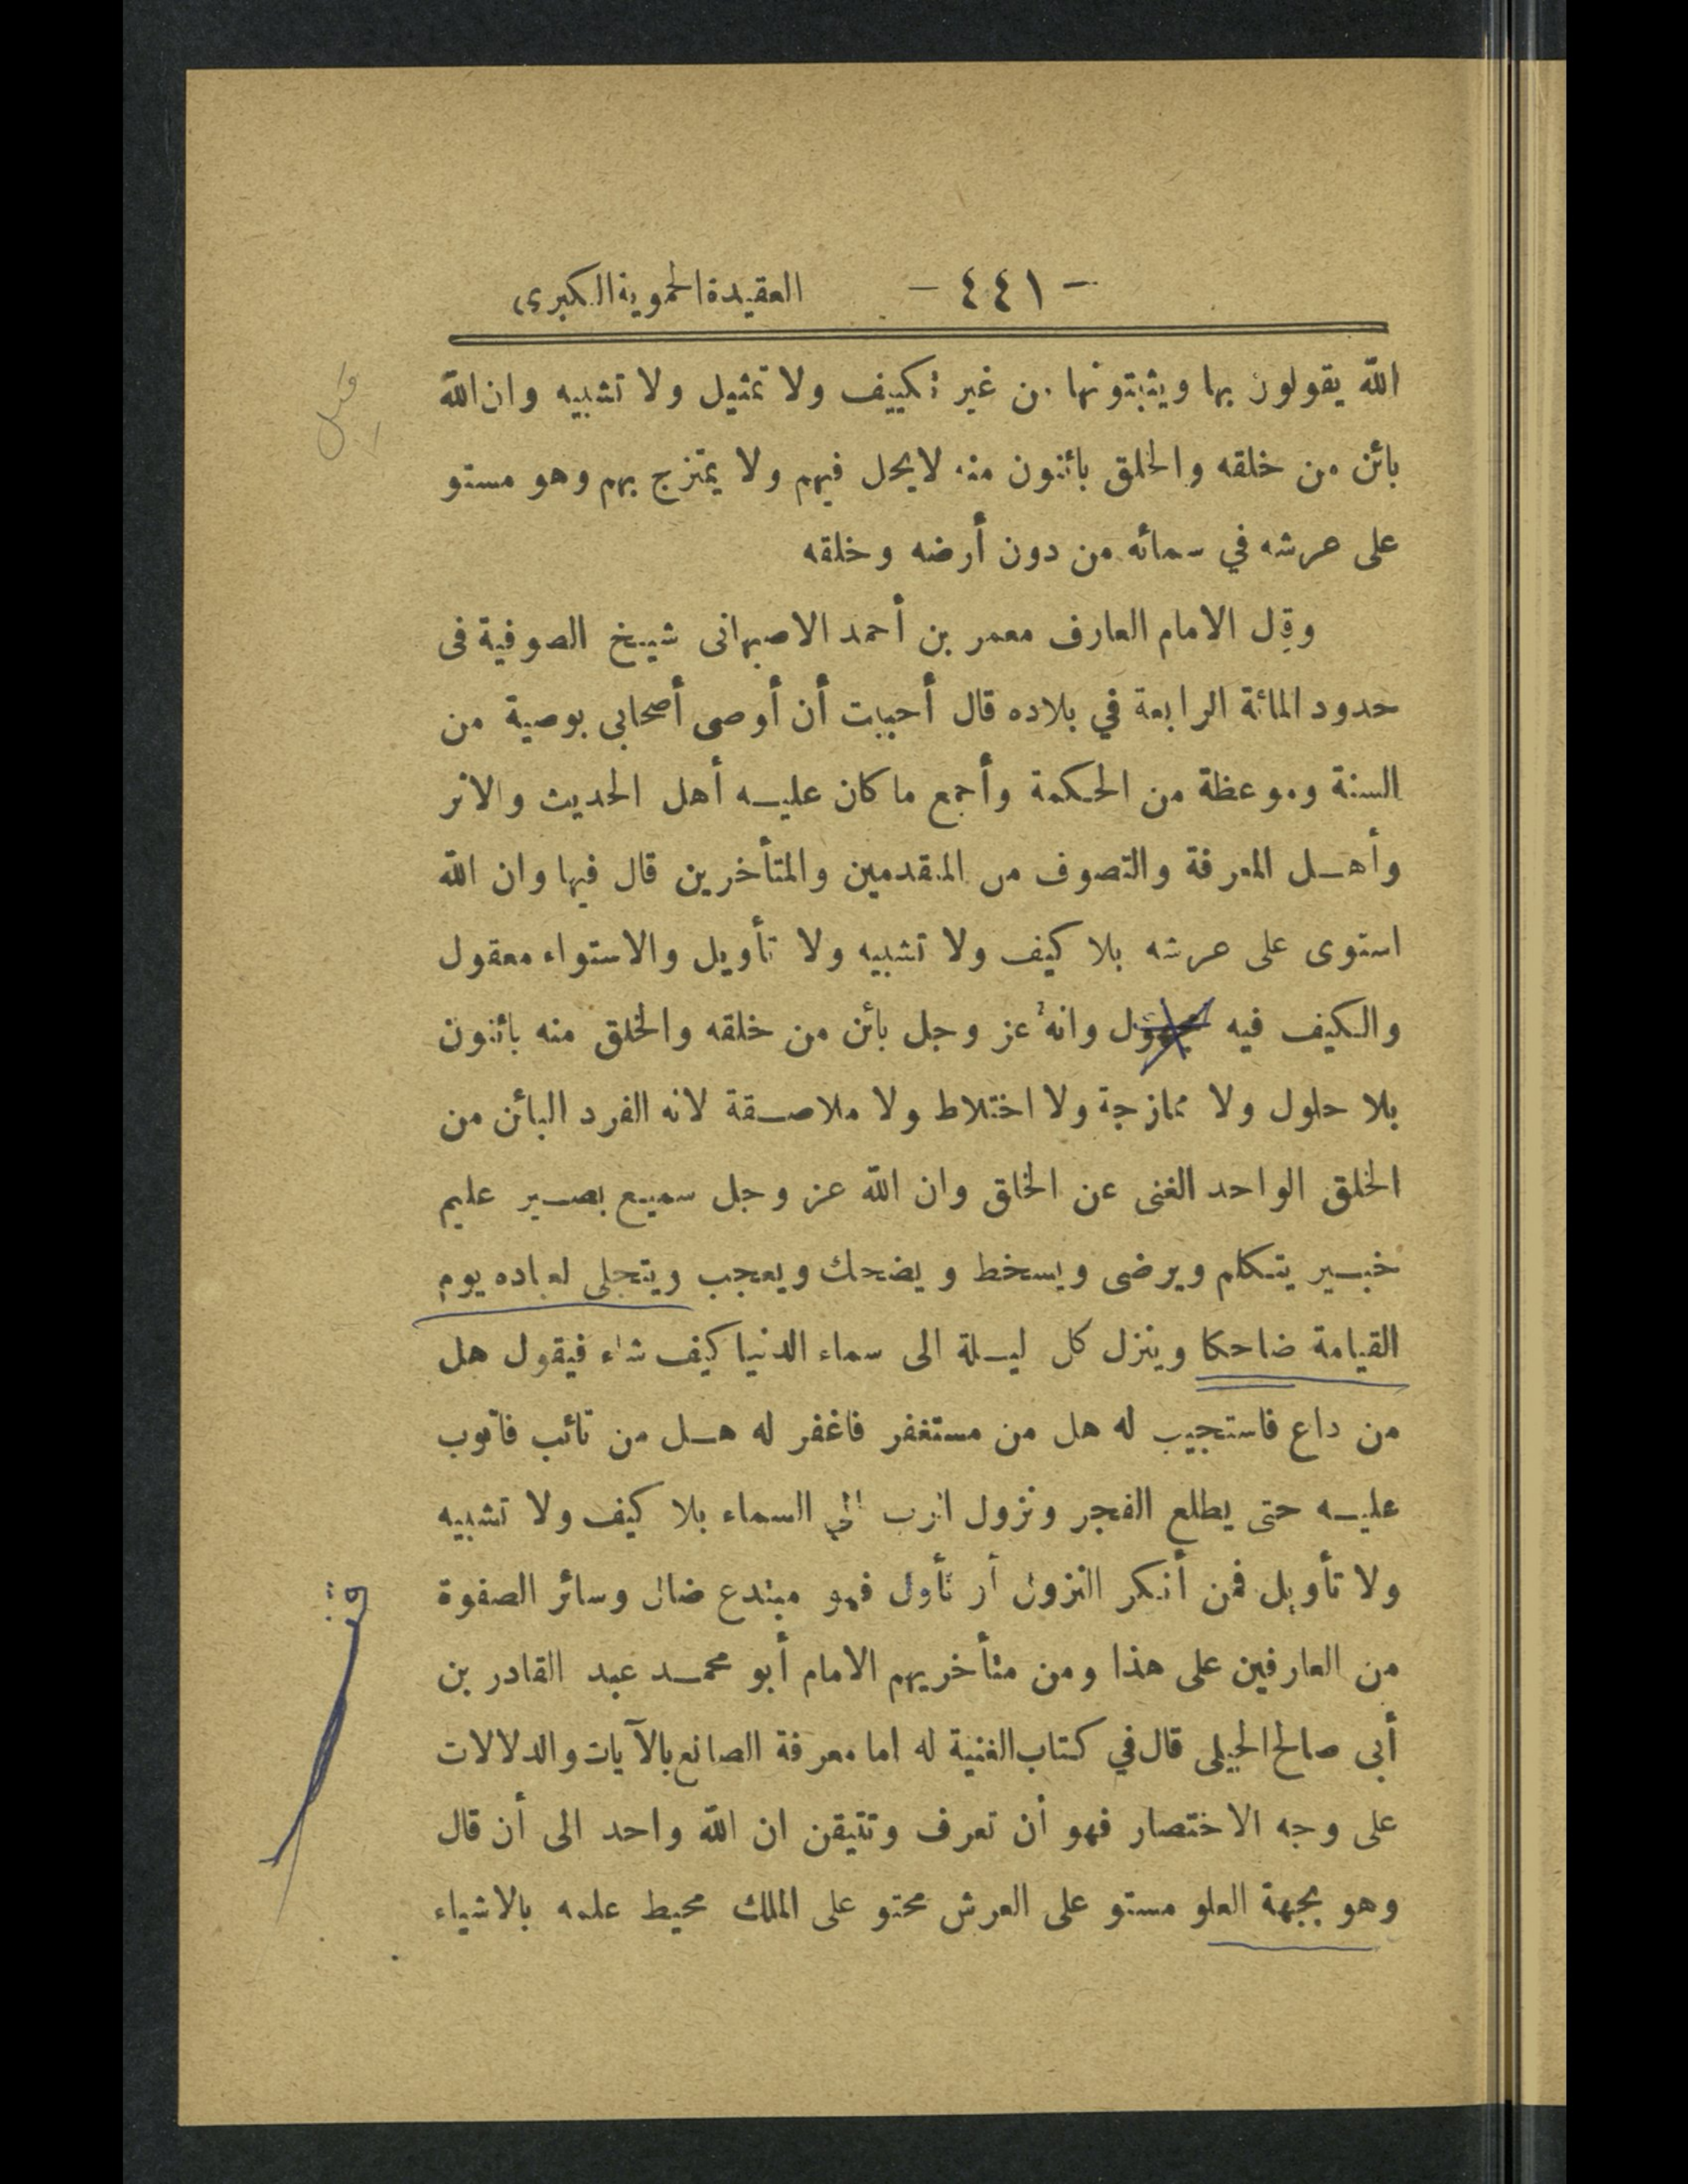 - ٤٤١ - العقيدة الحموية الكبرى
الله يقولون بها ويثبتونها من غير تكييف ولا تمثيل ولا تشبيه وان الله
بائن من خلقه والخلق بائنون منه لا يحل فيهم ولا يمتزج بهم وهو مستو
على عرشه في سمائه من دون أرضه وخلقه
وقال الامام العارف معمر بن أحمد الاصبهانى شيخ الصوفية فى
حدود المائة الرابعة في بلاده قال أحببت أن أوصى أصحابى بوصية من
السنة وموعظة من الحكمة وأجمع ما كان عليه أهل الحديث والاثر
وأهل المعرفة والتصوف من المتقدمين والمتأخرين قال فيها وان الله
استوى على عرشه بلا كيف ولا تشبيه ولا تأويل والاستواء معقول
والكيف فيه مجهول وانه عز وجل بائن من خلقه والخلق منه بائنون
بلا حلول ولا ممازجة ولا اختلاط ولا ملاصقة لانه الفرد البائن من
الخلق الواحد الغنى عن الخلق وان الله عز وجل سميع بصير عليم
خبير يتكلم ويرضى ويسخط ويضحك ويعجب ويتجلى لعباده يوم
القيامة ضاحكا وينزل كل ليلة الى سماء الدنيا كيف شاء فيقول هل
من داع فاستجيب له هل من مستغفر فاغفر له هل من تائب فاتوب
عليه حتى يطلع الفجر ونزول الرب الى السماء بلا كيف ولا تشبيه
ولا تأويل فمن أنكر النزول أو تأول فهو مبتدع ضال وسائر الصفوة
من العارفين على هذا ومن متأخريهم الامام أبو محمد عبد القادر بن
أبى صالح الجيلى قال في كتاب الغنية له اما معرفة الصانع بالآيات والدلالات
على وجه الاختصار فهو أن تعرف وتتيقن ان الله واحد الى أن قال
وهو بجهة العلو مستو على العرش محتو على الملك محيط علمه بالاشياء